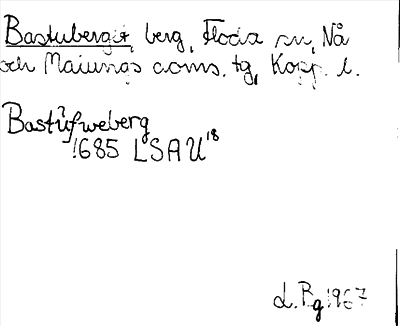 Bastuberget, berg, Floda sn, Nå
och Malungs doms. tg, Kopp. l.
Bastufweberg
1685 LSAU 18
L. Rg 1967